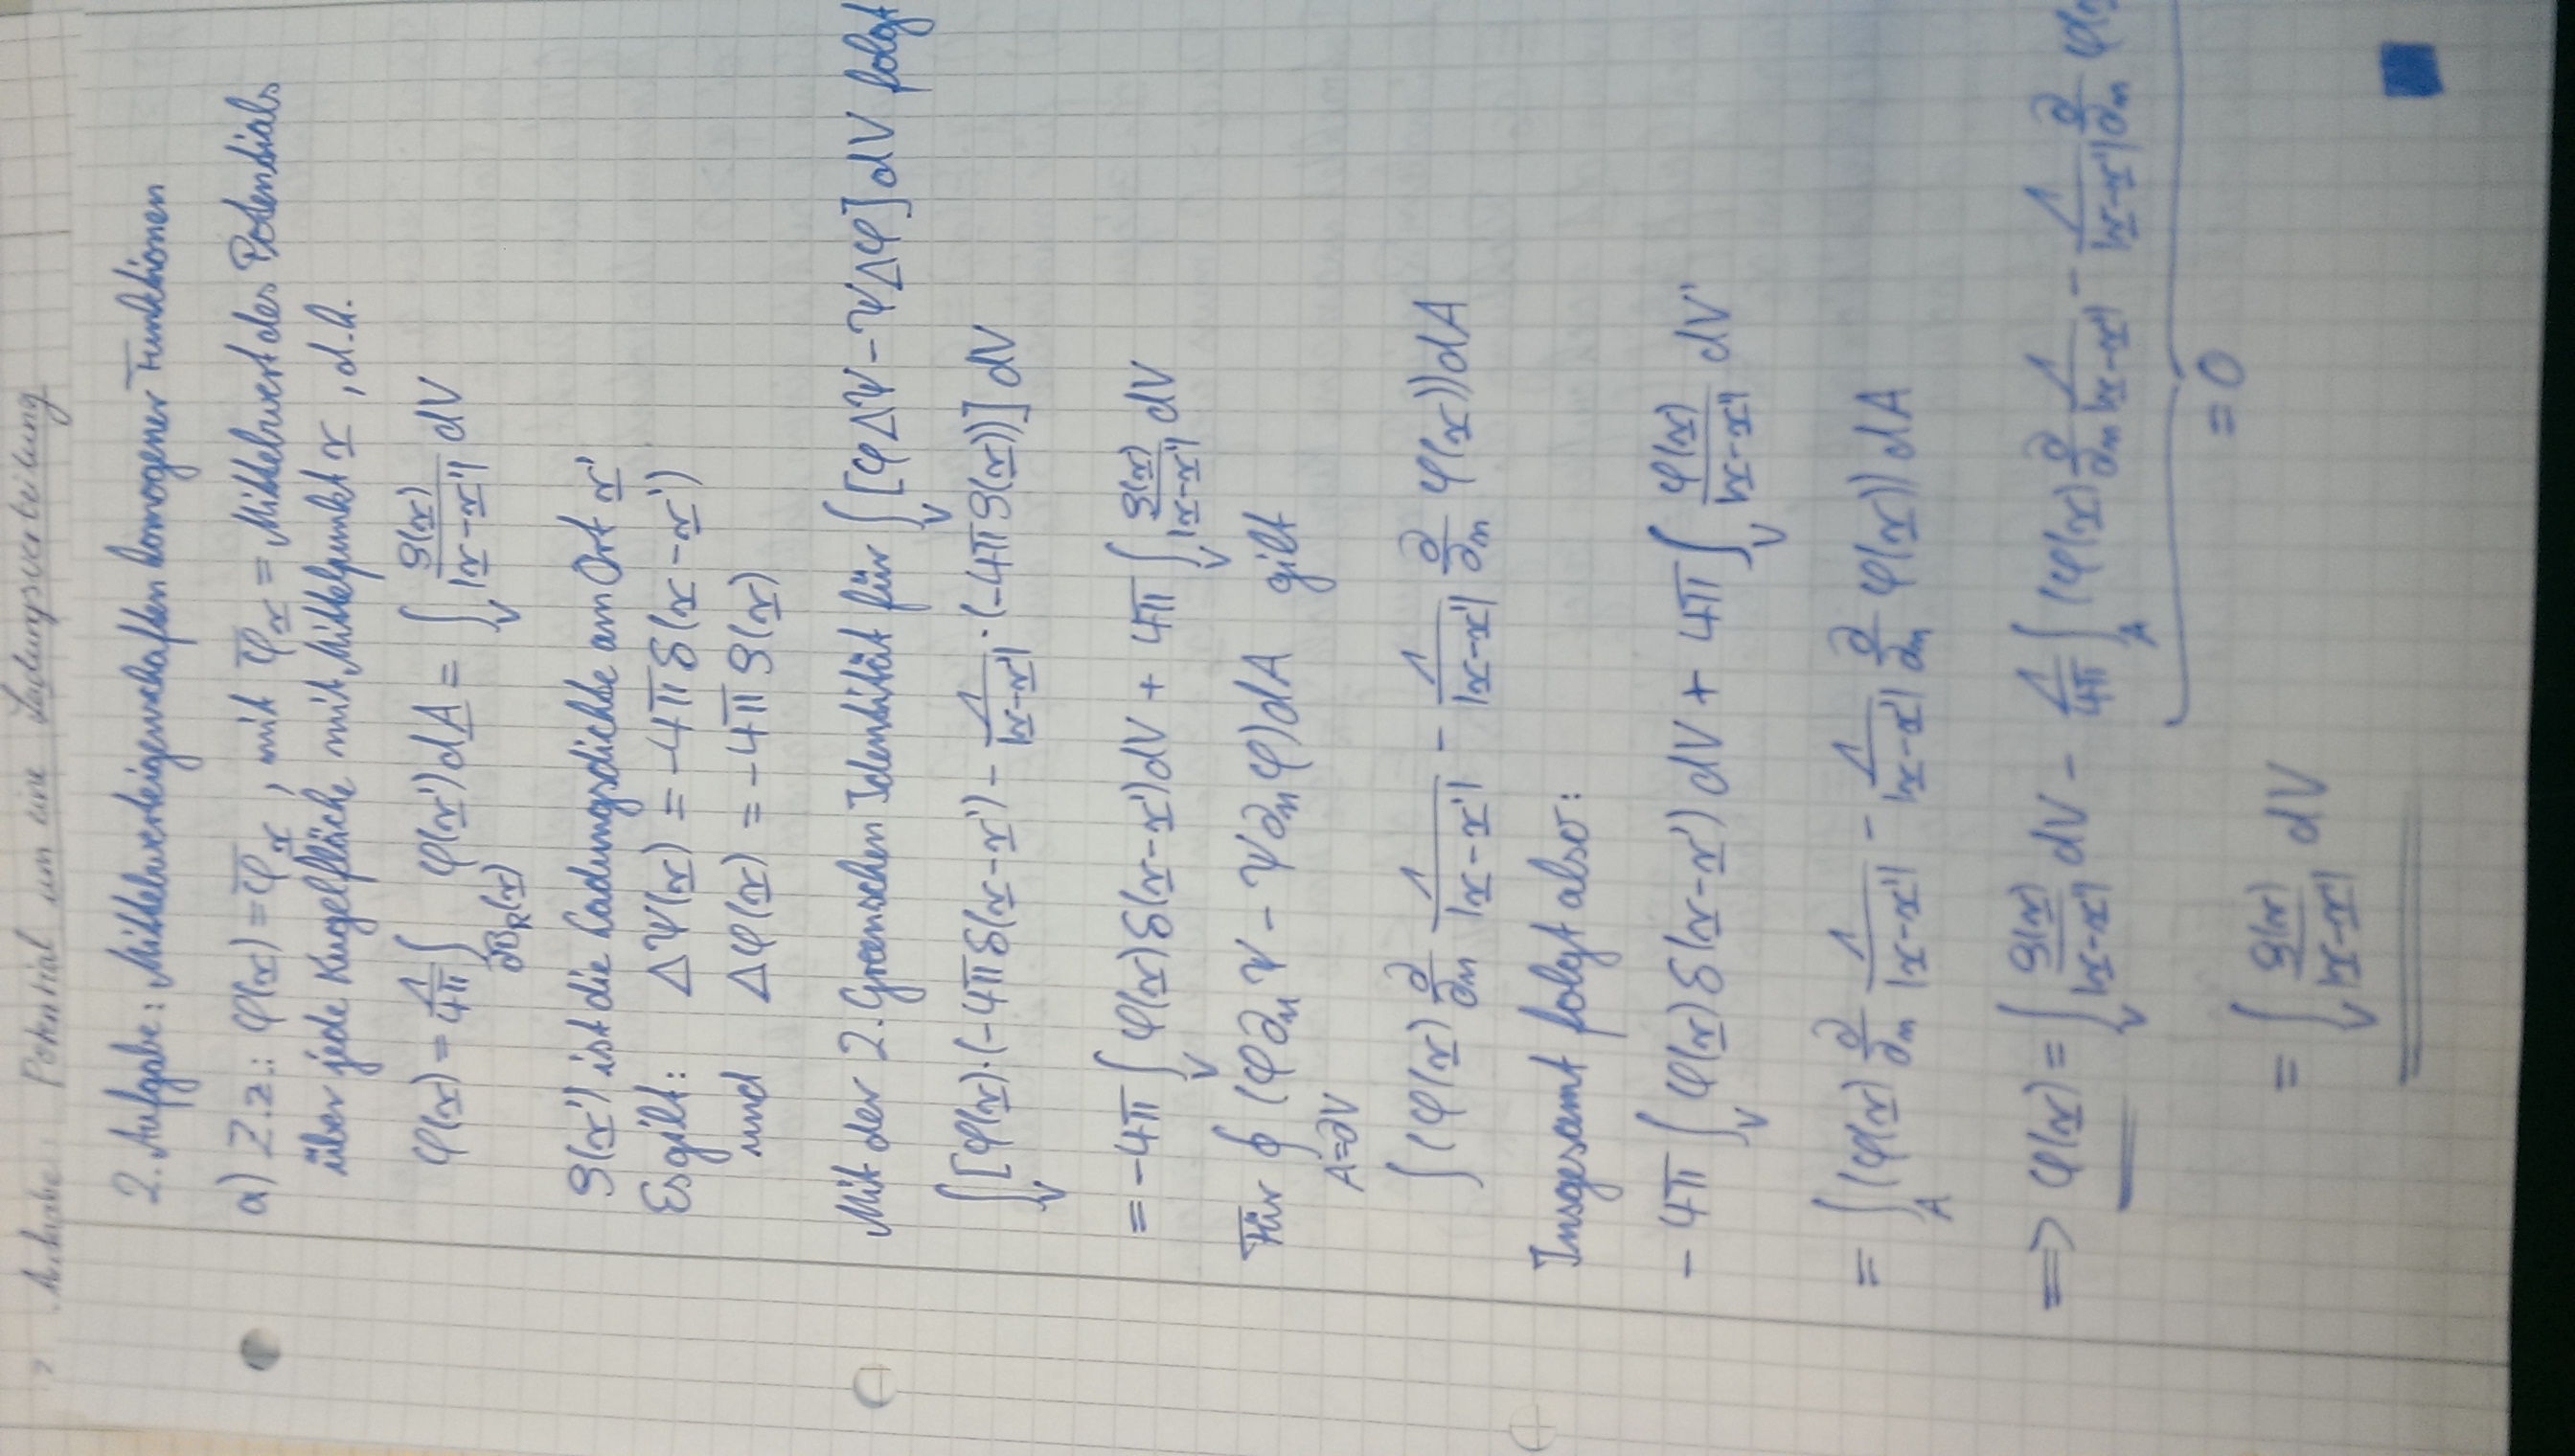 Aufgabe: Potential um eine Ladungsverteilung
2. Aufgabe: Mittelwerteigenschaften homogener Funktionen
a) Z.z.: φ(x) = φ̅_x, mit φ̅_x = Mittelwert des Potentials
über jede Kugelfläche mit Mittelpunkt x, d.h.
φ(x) = 1/4π ∫_{∂B_R(x)} φ(x')dA = ∫_V ρ(x)/|x-x'| dV
ρ(x') ist die Ladungsdichte am Ort x'
Es gilt: ΔΨ(x) = -4π δ(x-x')
und Δφ(x) = -4π ρ(x)
Mit der 2. Greenschen Identität für ∫_V [φΔΨ - ΨΔφ] dV folgt
∫_V [φ(x)·(-4π δ(x-x') - 1/|x-x'| ·(-4π ρ(x))] dV
= -4π ∫_V φ(x) δ(x-x')dV + 4π ∫_V ρ(x)/|x-x'| dV
Für ∮_{A=∂V} (φ∂_nΨ - Ψ∂_nφ)dA gilt
∫ (φ(x) ∂/∂n 1/|x-x'| - 1/|x-x'| ∂/∂n φ(x))dA
Insgesamt folgt also:
-4π ∫_V φ(x) δ(x-x') dV + 4π ∫_V φ(x)/|x-x'| dV'
= ∫_A (φ(x) ∂/∂n 1/|x-x'| - 1/|x-x'| ∂/∂n φ(x)) dA
⇒ φ(x) = ∫_V ρ(x)/|x-x'| dV - 1/4π ∫_A (φ(x) ∂/∂n 1/|x-x'| - 1/|x-x'| ∂/∂n φ(x
= 0
= ∫_V ρ(x)/|x-x'| dV